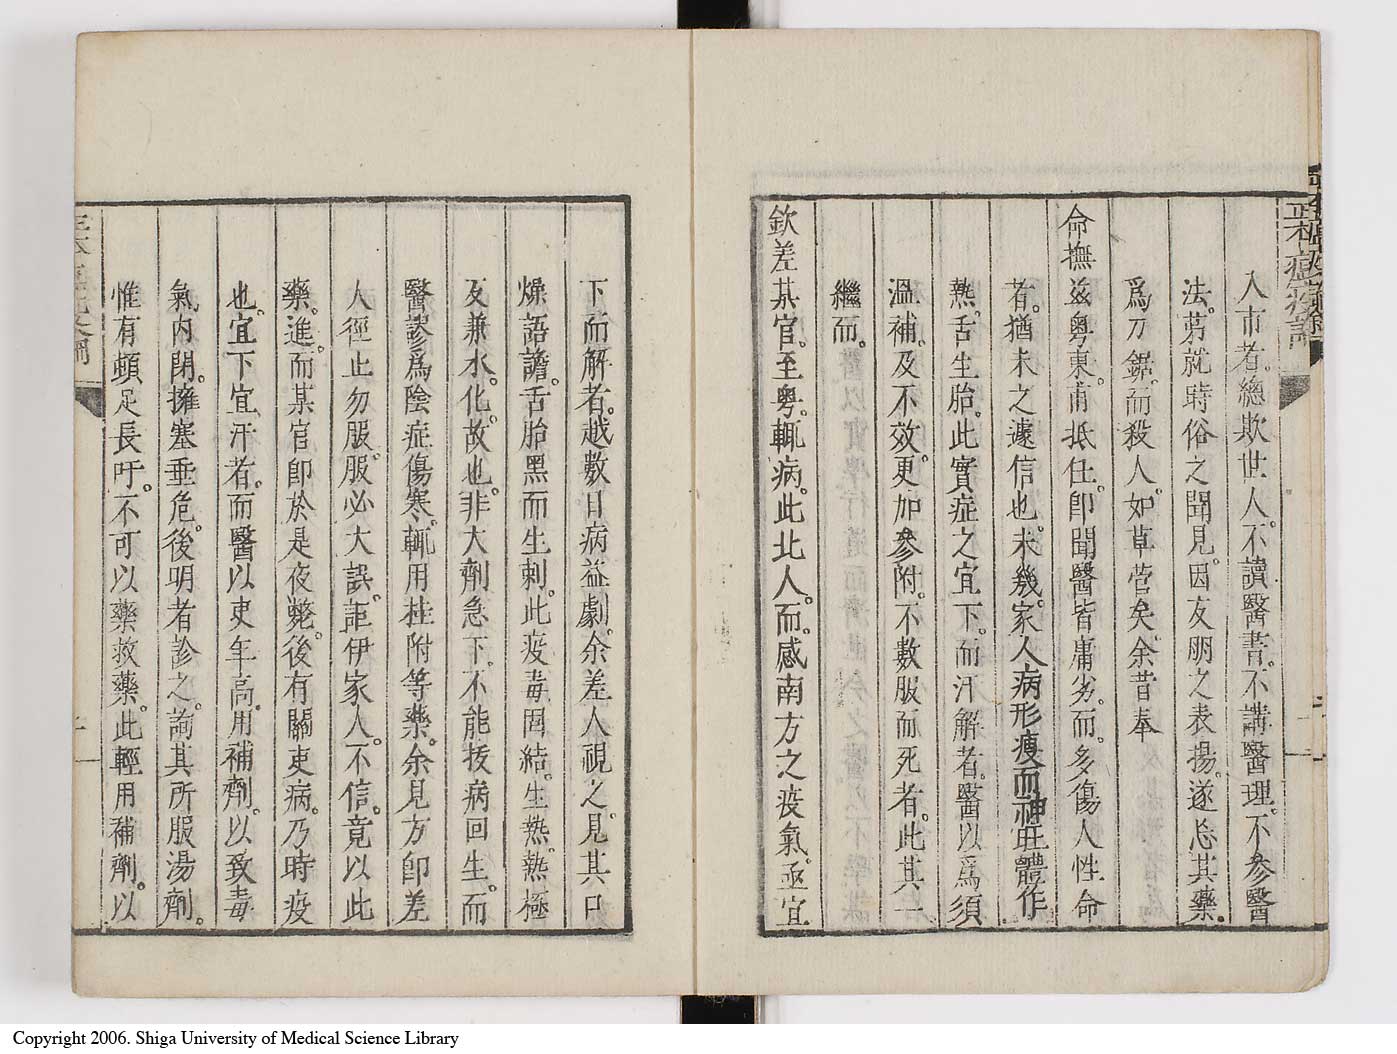 入市者。總欺世人。不讀醫書。不講醫理。不參醫
法。剪就時俗之聞見。因友朋之表揚。遂忘其藥。
爲刀鋸。而殺人。如草菅矣。余昔奉
命撫兹粤東。甫抵任。卽聞醫皆庸劣。而。多傷人性命
者。猶未之遽信也。未幾。家人病形瘦而神旺。體作
熱。舌生胎。此實症之宜下。而汗解者。醫以爲須
溫補。及不效。更加參附。不數服而死者。此其一
繼而。
欽差某官。至粤。輒病。此北人。而。感南方之疫氣。亟宜
下而解者。越數日病益劇。余差人視之。見其口
燥語譫。舌胎黑而生刺。此疫毒固結。生熱。熱極
反兼水。化。故也。非大劑急下。不能拔病回生。而
醫謬爲陰症傷寒。輒用桂附等藥。余見方卽差
人徑止勿服。服必大誤。詎伊家人。不信。竟以此
藥。進。而某官卽於是夜斃。後有關吏病。乃時疫
也。宜下宜汗者。而醫以吏年高。用補劑。以致毒
氣內閉。擁塞垂危。後明者診之。詢其所服湯劑。
惟有頓足長吁。不可以藥救藥。此輕用補劑。以